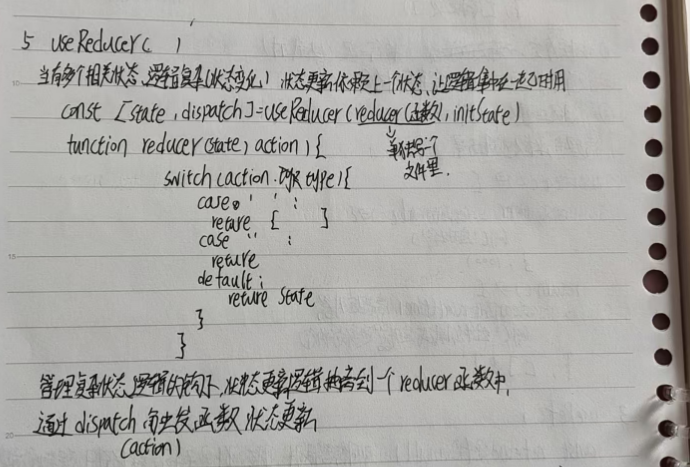 5 useReducer( )
当有多个相关状态,逻辑复杂(状态变化) 状态更新依赖上一个状态,让逻辑集中在一起时用
const [state, dispatch]=useReducer(reducer(函数), initState)
function reducer(state, action){
单独写一个
文件里.
switch(action.type){
case ' ' :
reture [ ]
case ' ' :
reture
default:
reture state
}
}
管理复杂状态逻辑的钩子,状态更新逻辑抽离到一个reducer函数中,
通过dispatch 触发函数 状态更新
(action)